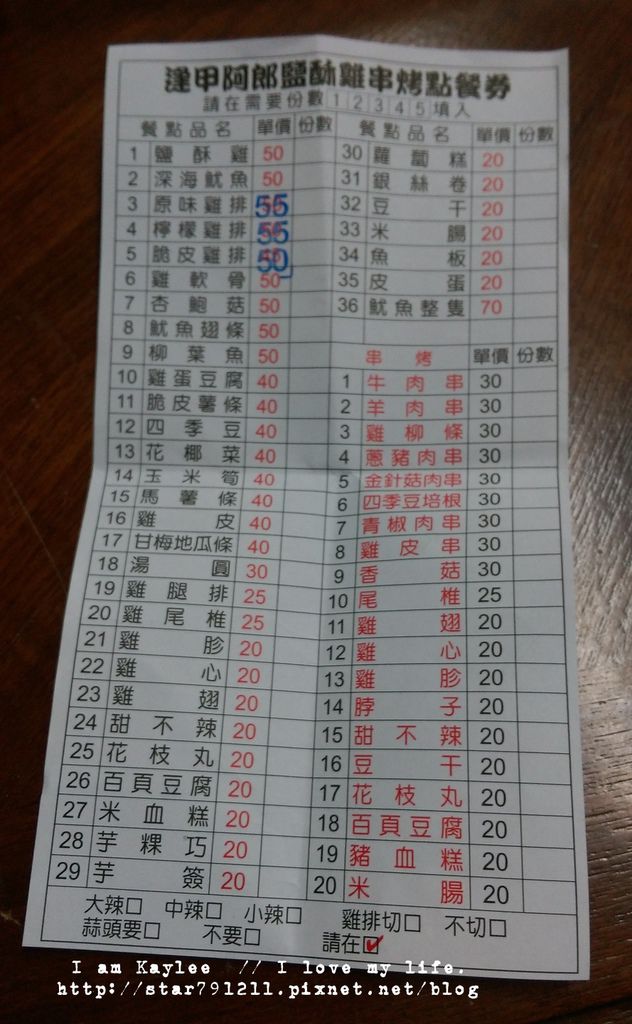 逢甲阿郎鹽酥雞串烤點餐券
請在需要份數12345填入
餐點品名 單價 份數
1 鹽酥雞 50
2 深海魷魚 50
3 原味雞排 55
4 檸檬雞排 55
5 脆皮雞排 50
6 雞軟骨 50
7 杏鮑菇 50
8 魷魚翅條 50
9 柳葉魚 50
10 雞蛋豆腐 40
11 脆皮薯條 40
12 四季豆 40
13 花椰菜 40
14 玉米筍 40
15 馬薯條 40
16 雞皮 40
17 甘梅地瓜條 40
18 湯圓 30
19 雞腿排 25
20 雞尾椎 25
21 雞胗 20
22 雞心 20
23 雞翅 20
24 甜不辣 20
25 花枝丸 20
26 百頁豆腐 20
27 米血糕 20
28 芋粿巧 20
29 芋簽 20
餐點品名 單價 份數
30 蘿蔔糕 20
31 銀絲卷 20
32 豆干 20
33 米腸 20
34 魚板 20
35 皮蛋 20
36 魷魚整隻 70
串烤 單價 份數
1 牛肉串 30
2 羊肉串 30
3 雞柳條 30
4 蔥豬肉串 30
5 金針菇肉串 30
6 四季豆培根 30
7 青椒肉串 30
8 雞皮串 30
9 香菇 30
10 尾椎 25
11 雞翅 20
12 雞心 20
13 雞胗 20
14 脖子 20
15 甜不辣 20
16 豆干 20
17 花枝丸 20
18 百頁豆腐 20
19 豬血糕 20
20 米腸 20
大辣□ 中辣□ 小辣□ 雞排切□ 不切□
蒜頭要□ 不要□ 請在☑
I am Kaylee // I love my life.
http://star791211.pixnet.net/blog